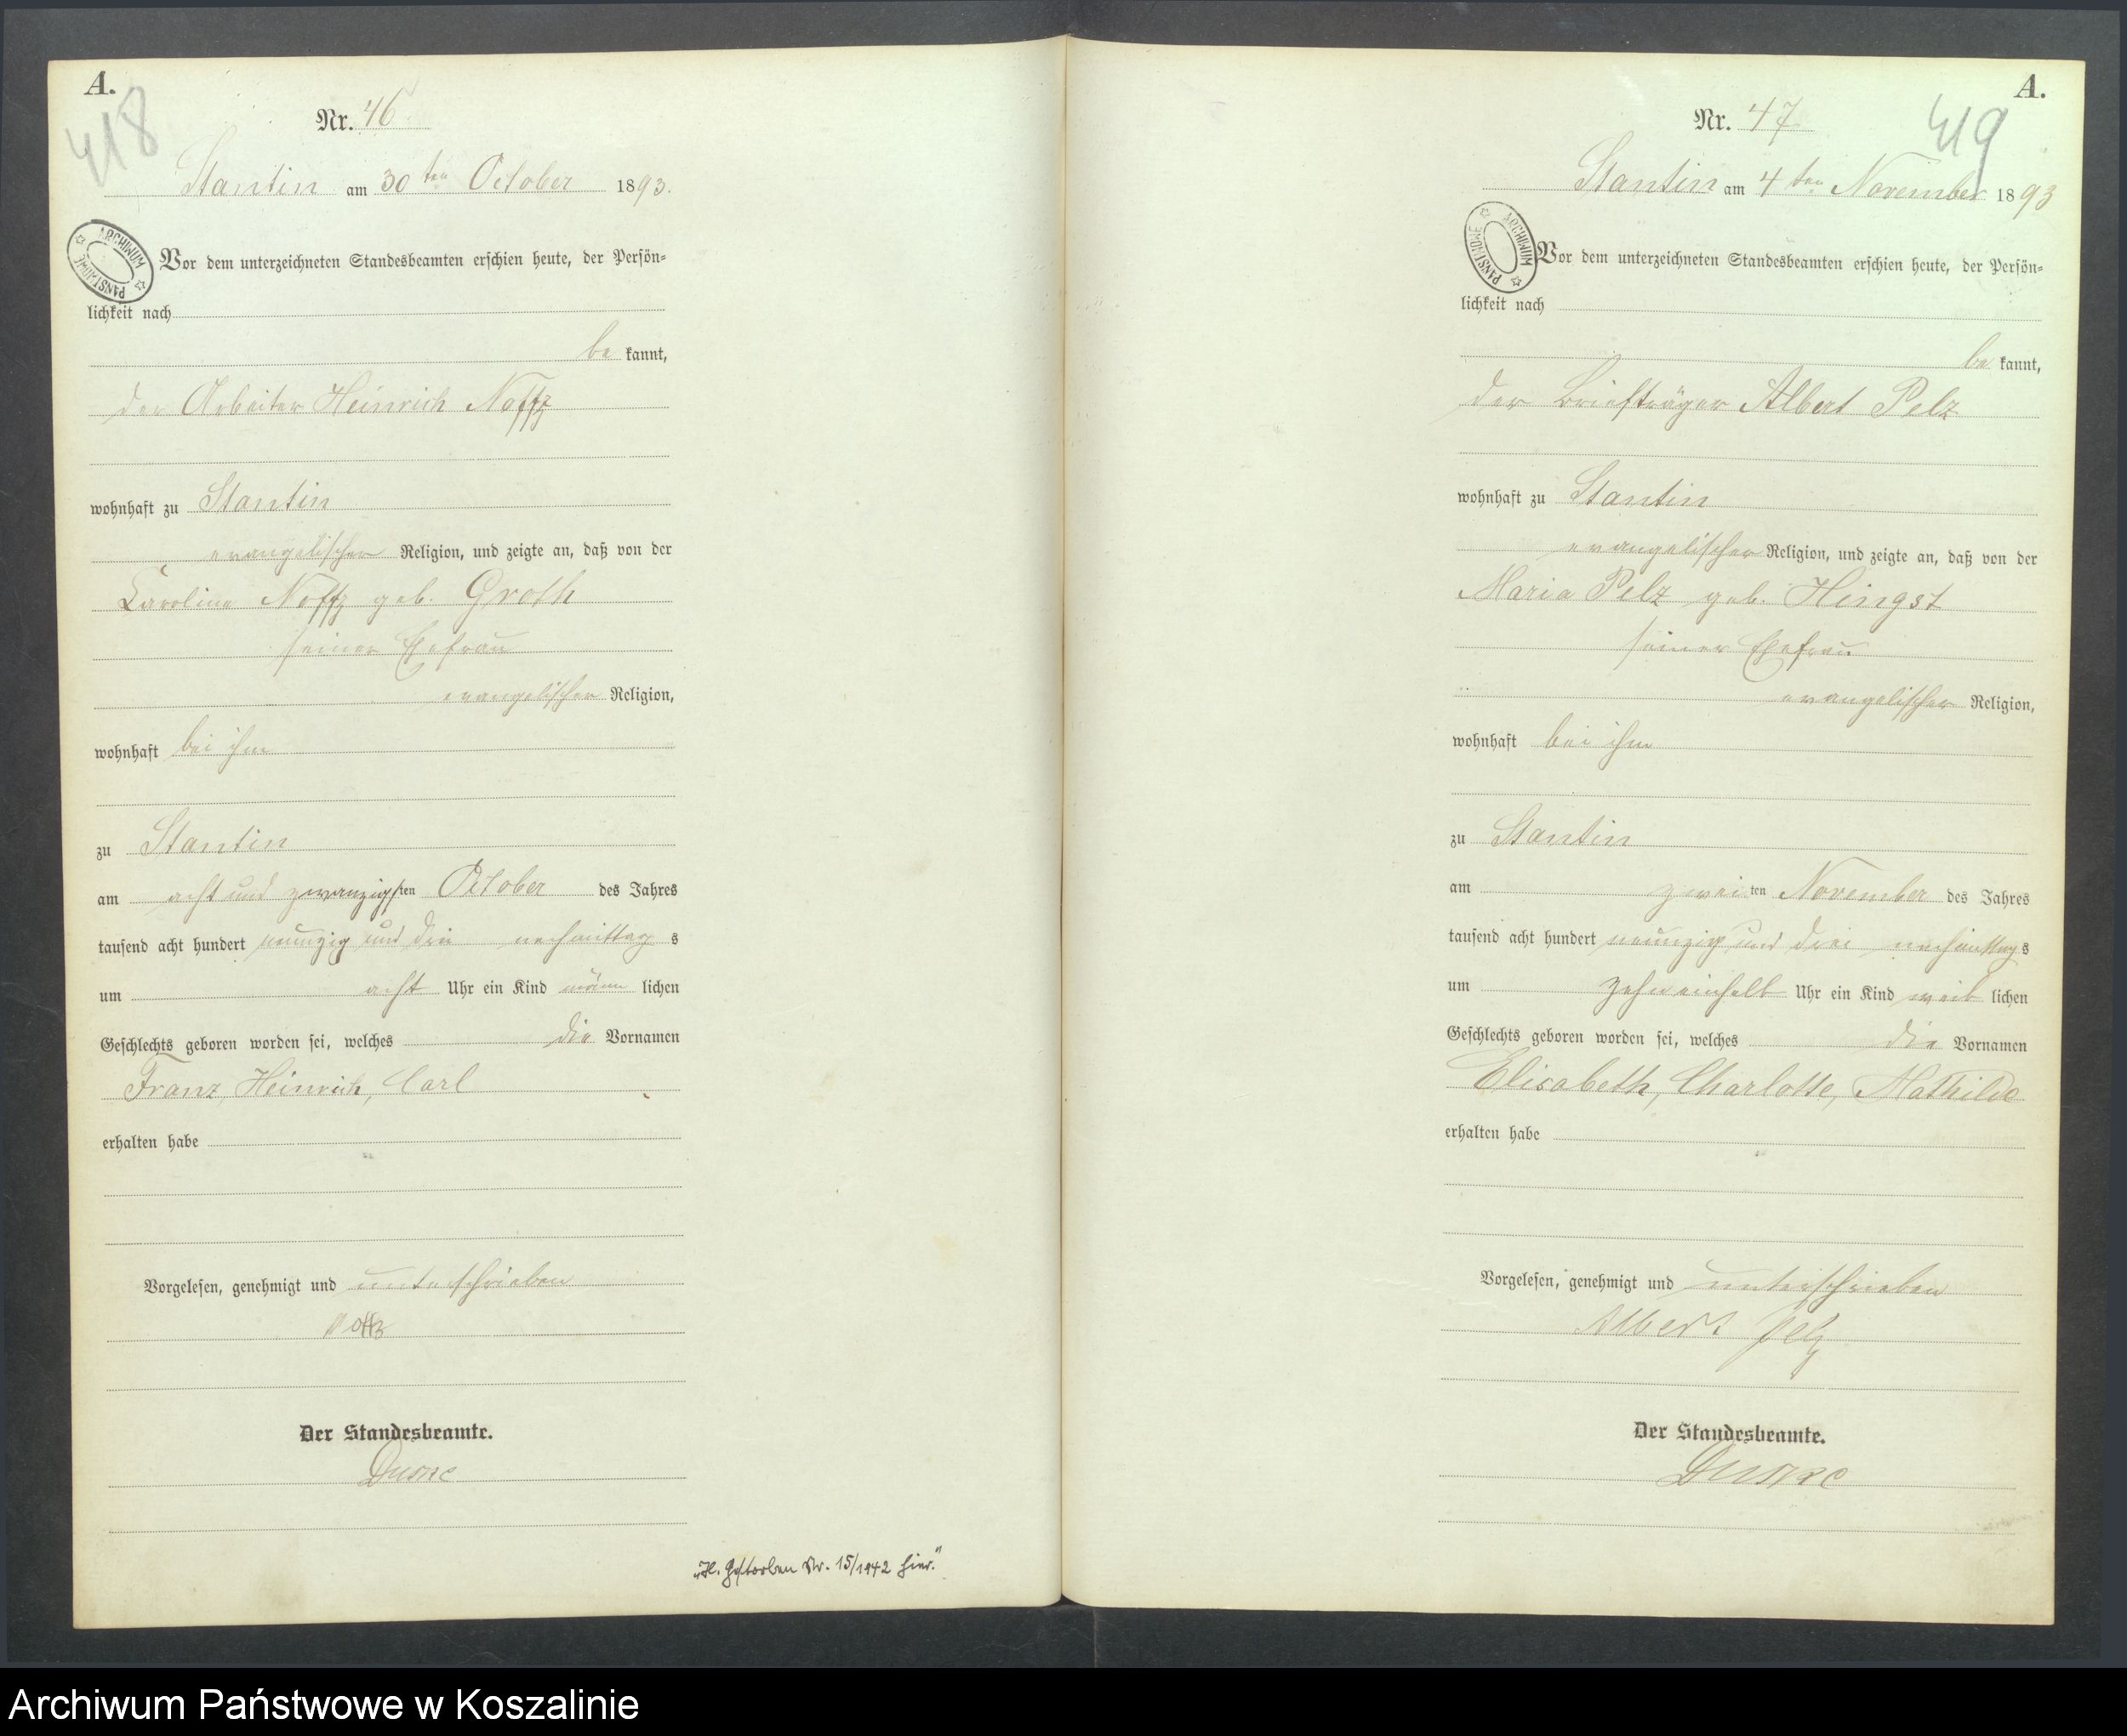 A.
418
Nr. 46
Stantin am 30ten October 1893.
ARCHIWUM PAŃSTWOWE
Vor dem unterzeichneten Standesbeamten erschien heute, der Persön-
lichkeit nach
be kannt,
der Arbeiter Heinrich Noffz
wohnhaft zu Stantin
evangelischer Religion, und zeigte an, daß von der
Caroline Noffz geb. Groth
seiner Ehefrau
evangelischer Religion,
wohnhaft bei ihm
zu Stantin
am acht und zwanzigsten October des Jahres
tausend acht hundert neunzig und drei nachmittags
um acht Uhr ein Kind männlichen
Geschlechts geboren worden sei, welches die Vornamen
Franz, Heinrich, Carl
erhalten habe
Vorgelesen, genehmigt und unterschrieben
Noffz
Der Standesbeamte.
„H. Gestorben Nr. 15/1942 hier.“
A.
419
Nr. 47
Stantin am 4ten November 1893
ARCHIWUM PAŃSTWOWE
Vor dem unterzeichneten Standesbeamten erschien heute, der Persön-
lichkeit nach
be kannt,
der Briefträger Albert Pelz
wohnhaft zu Stantin
evangelischer Religion, und zeigte an, daß von der
Maria Pelz geb. Hingst
seiner Ehefrau
evangelischer Religion,
wohnhaft bei ihm
zu Stantin
am zweiten November des Jahres
tausend acht hundert neunzig und drei nachmittags
um zehneinhalb Uhr ein Kind weiblichen
Geschlechts geboren worden sei, welches die Vornamen
Elisabeth, Charlotte, Mathilde
erhalten habe
Vorgelesen, genehmigt und unterschrieben
Albert Pelz
Der Standesbeamte.
Archiwum Państwowe w Koszalinie